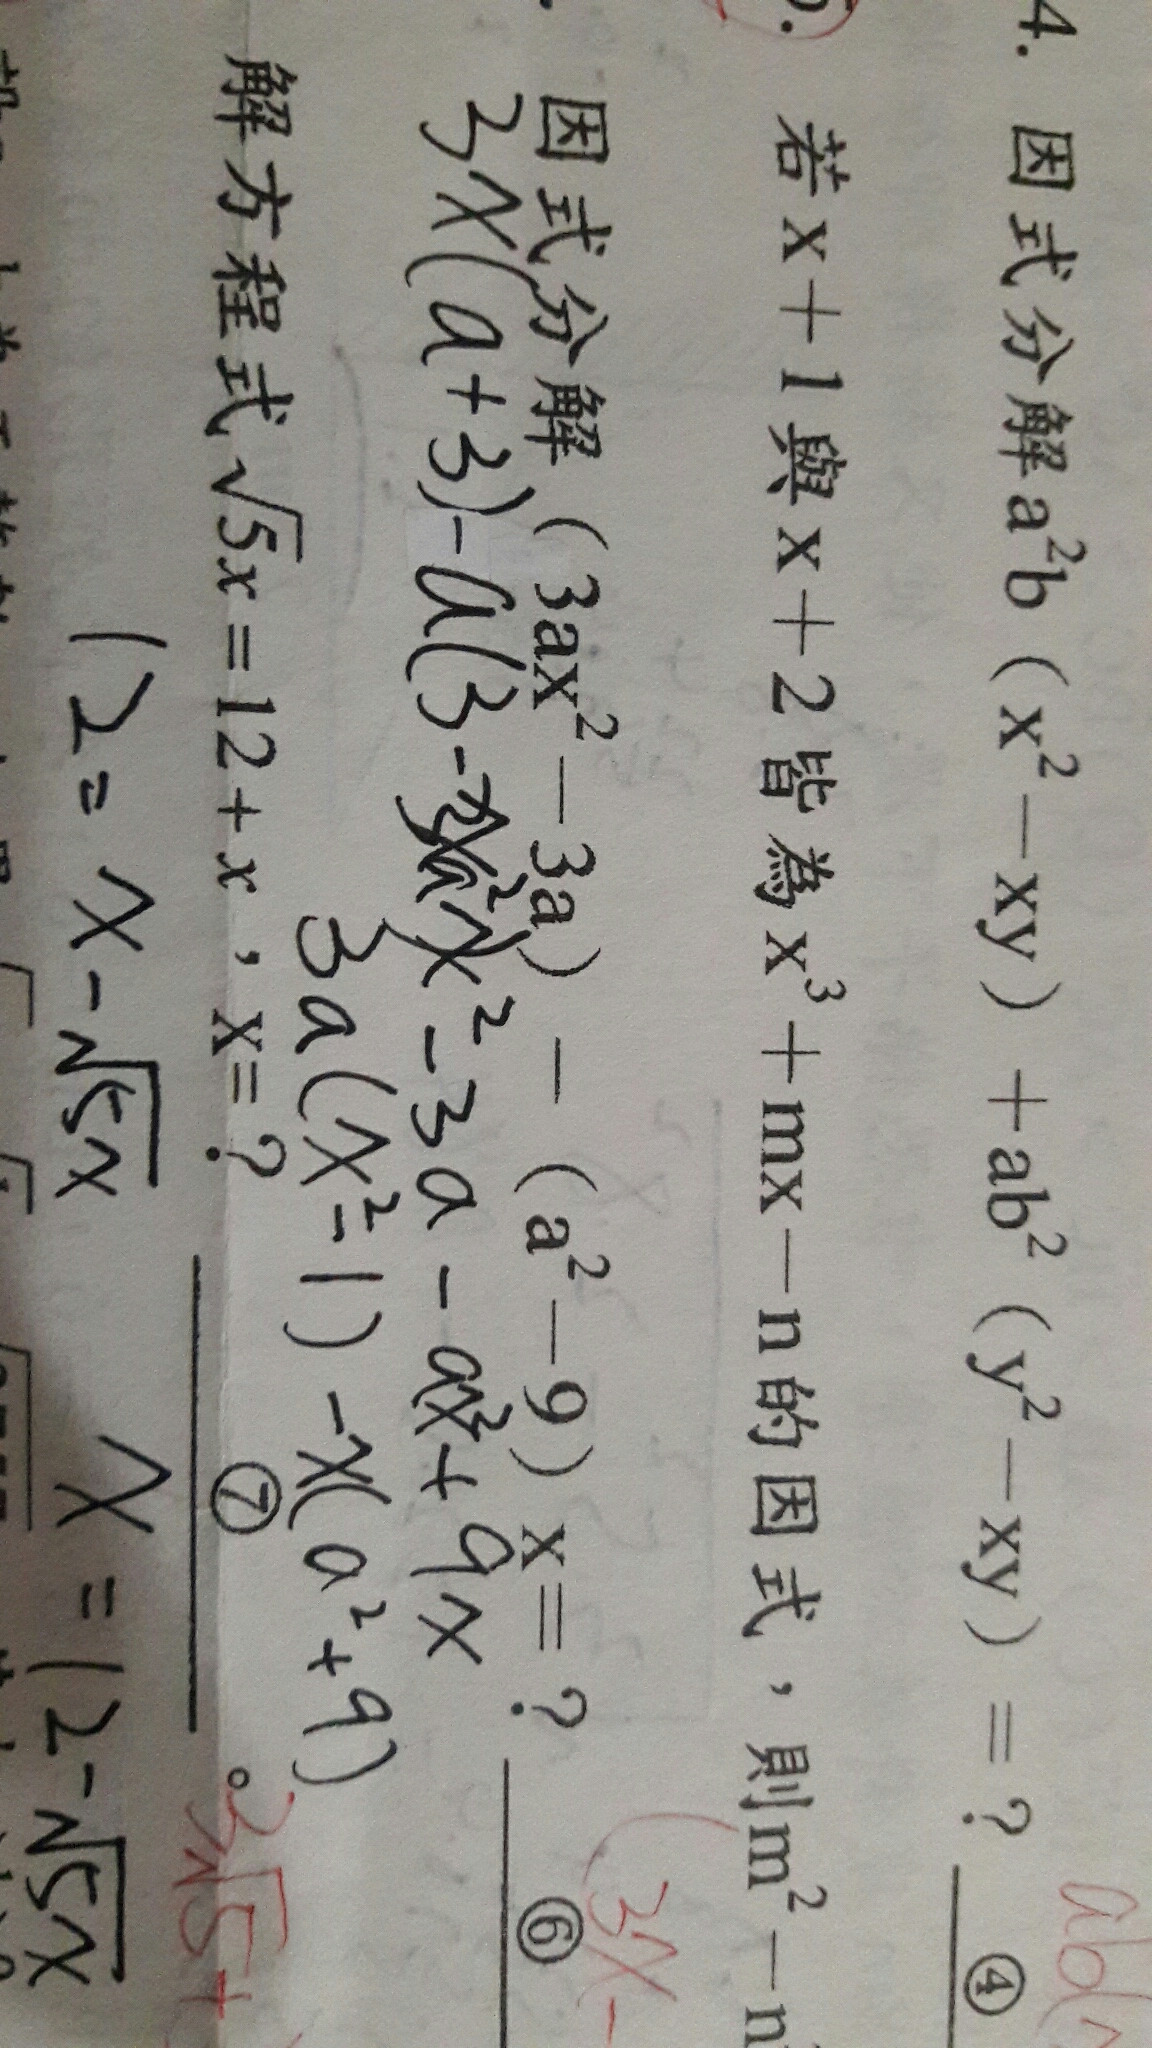 4. 因式分解a²b（x²－xy）＋ab²（y²－xy）＝？ ④
ab(
若x＋1與x＋2皆為x³＋mx－n的因式，則m²－n
因式分解（3ax²－3a）－（a²－9）x＝？ ⑥
(3x-
3x(a+3)-a(3-
x²-3a-ax²+9x
3a(x²-1)-x(a²+9)
解方程式√5x＝12＋x，x＝？ ⑦。
3√5+
12=x-√5x
x=12-√5x